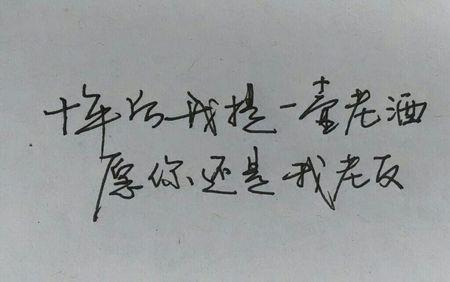 十年后我提一壶老酒
愿你还是我老友